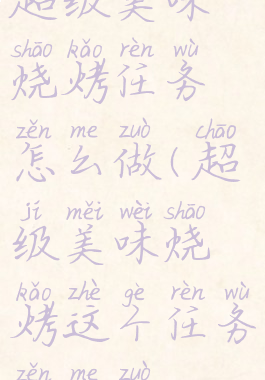 超级美味
shāo kǎo rèn wù
烧烤任务
zěn me zuò chāo
怎么做(超
jí měi wèi shāo
级美味烧
kǎo zhè gè rèn wù
烤这个任务
zěn me zuò